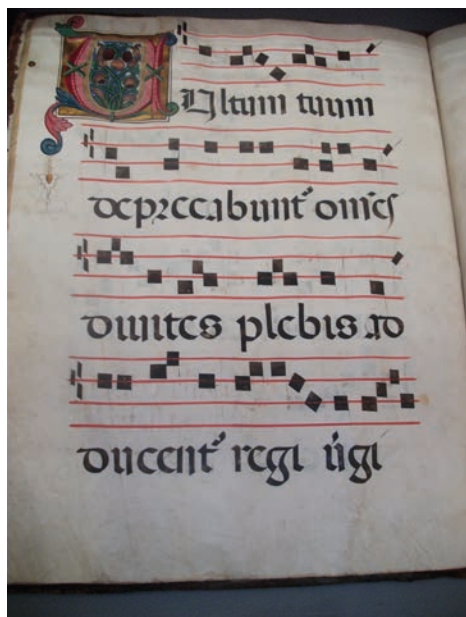 Vultum tuum
deprecabunt' om̄es
diuites plebis ad
ducent' regi u̇gi